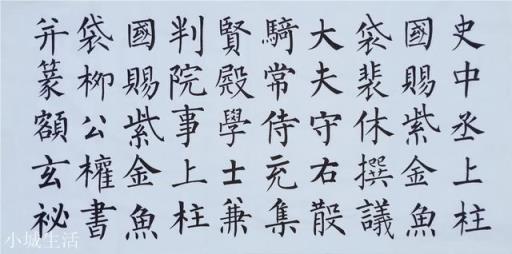 史中丞上柱
國賜紫金魚
袋裴休撰議
大夫守右散
騎常侍充集
賢殿學士兼
判院事上柱
國賜紫金魚
袋柳公權書
并篆額玄祕
小城生活